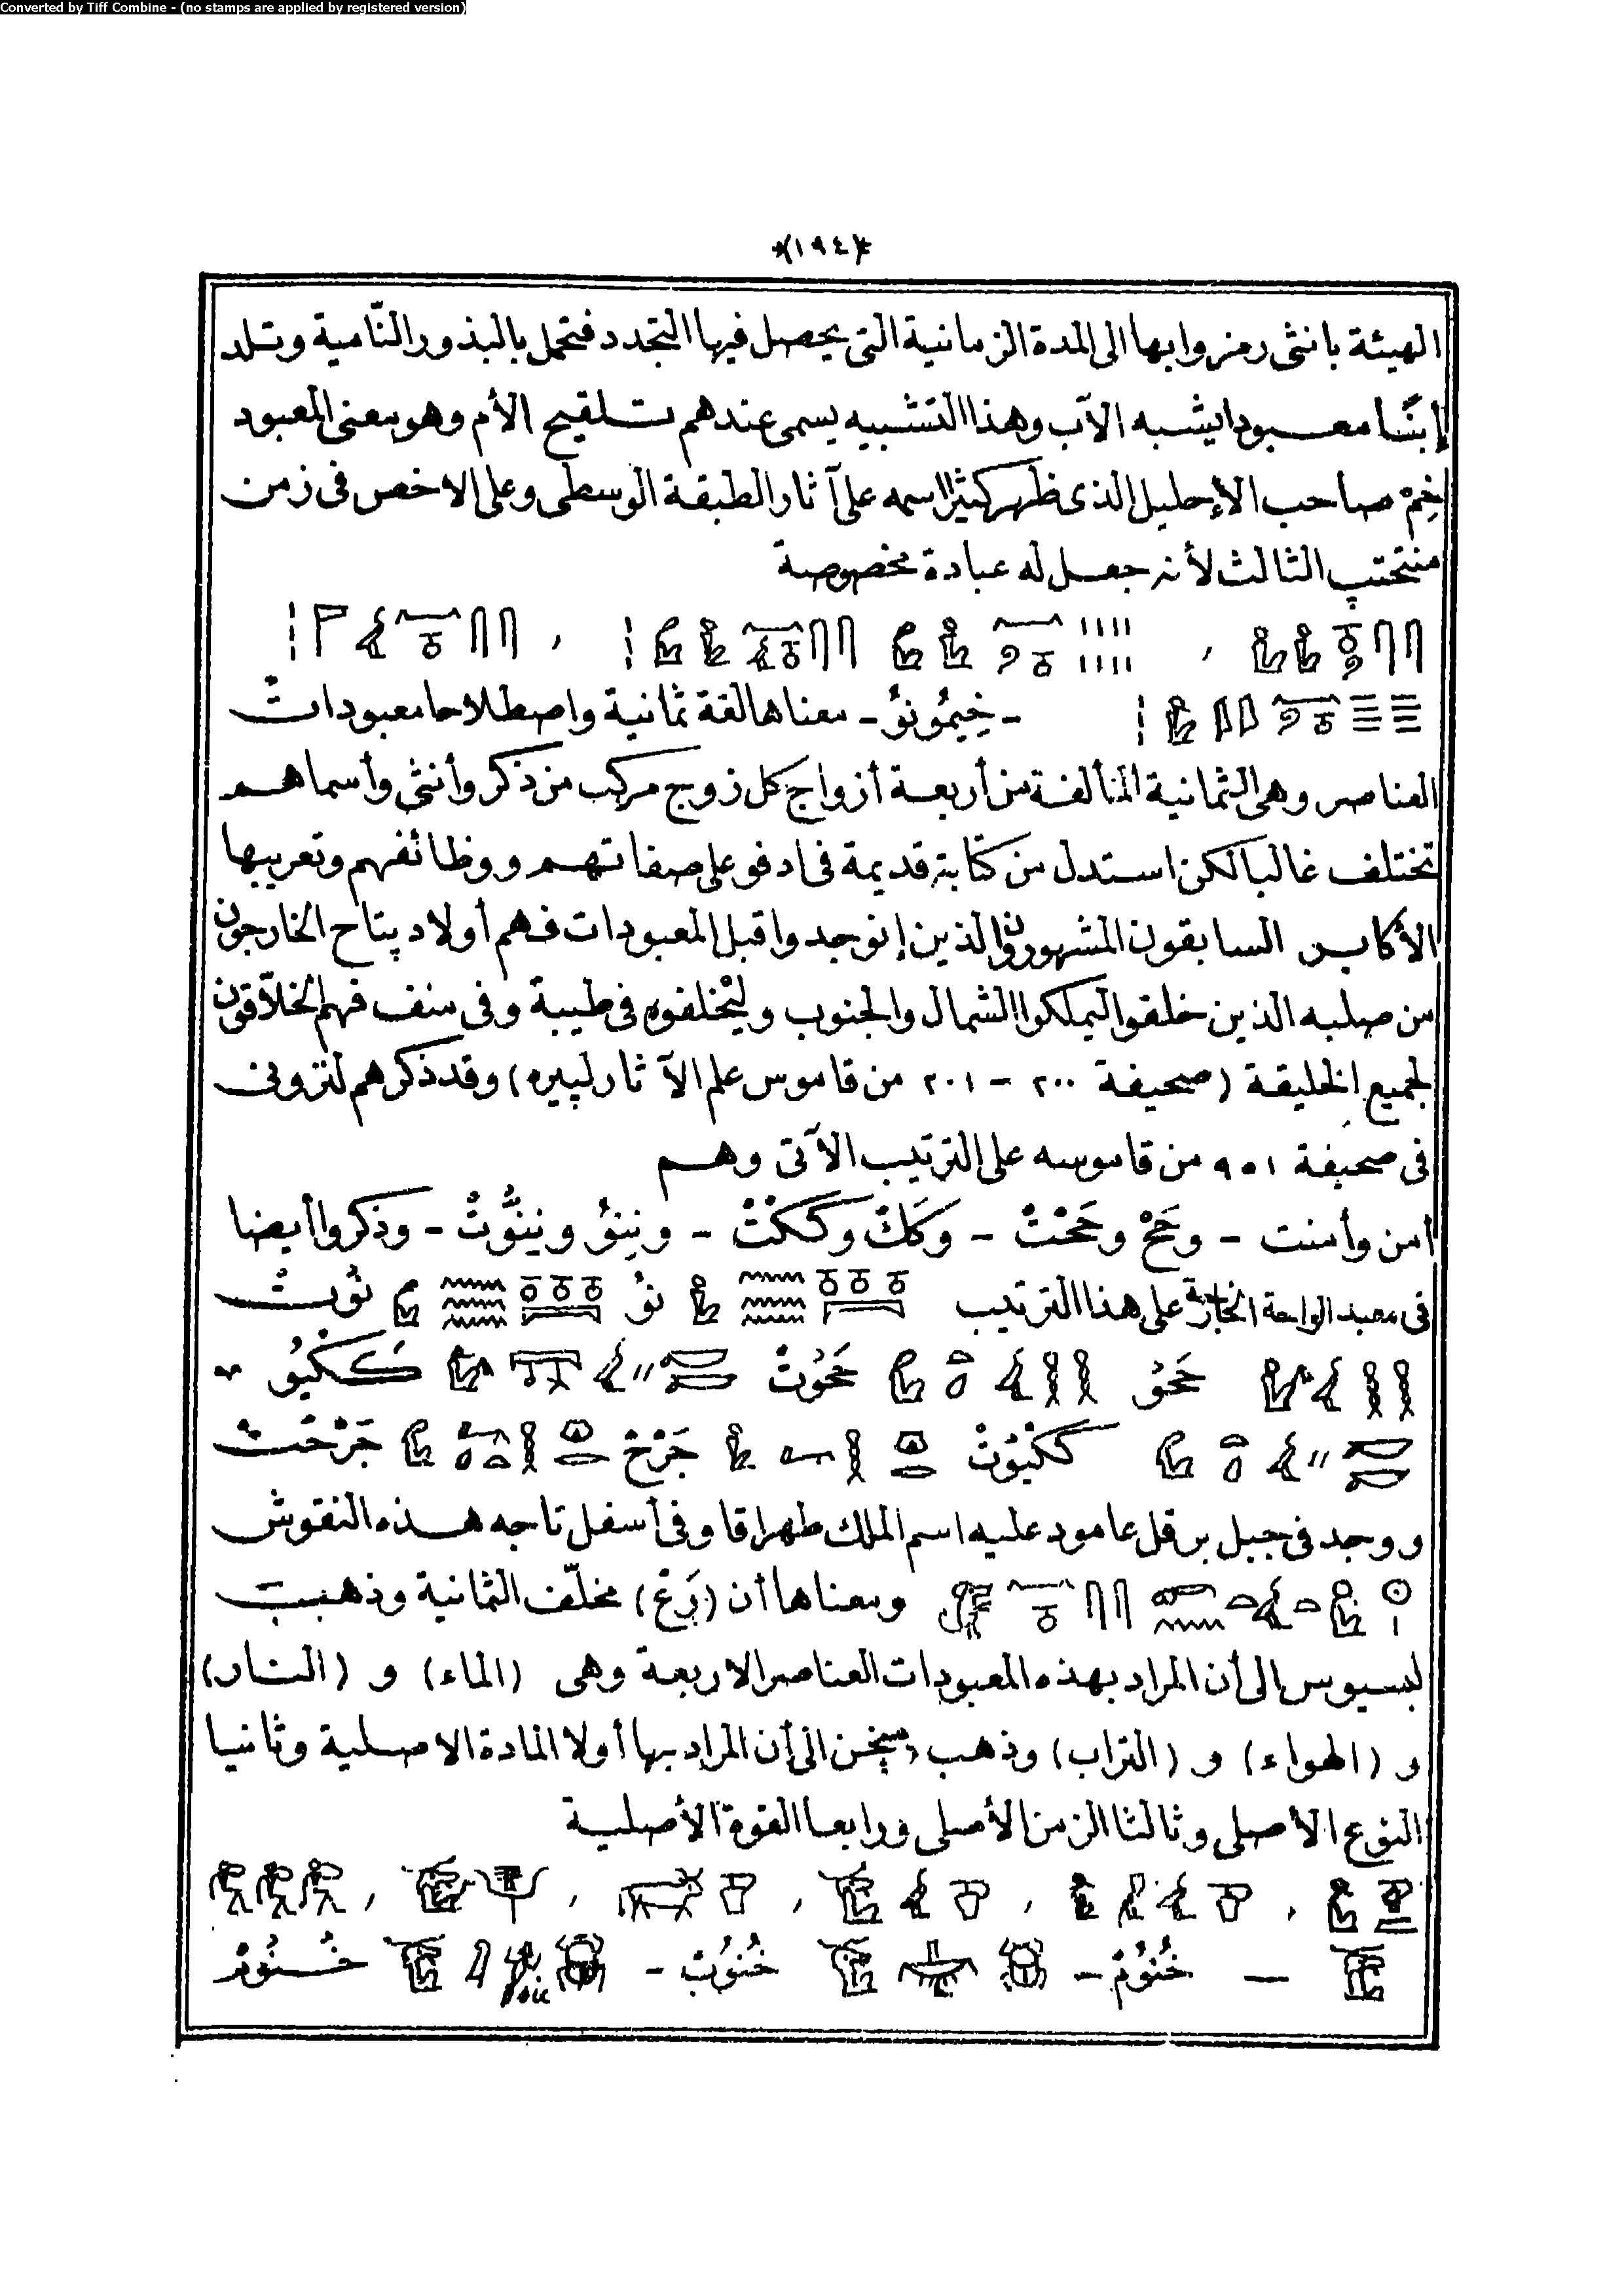 Converted by Tiff Combine - (no stamps are applied by registered version)
*(١٩٤)*
الهيئة بانثى رمزوا بها الى المدة الزمانية التى يحصل فيها التجدد فتحمل بالبذور النّامية وتلد
إبنًا معبودا يشبه الآب وهذا التشبيه يسمى عندهم تلقيح الأم وهو معنى المعبود
خِمْ صاحب الإحليل الذى ظهر كثيرا اسمه على آثار الطبقة الوسطى وعلى الاخص فى زمن
منتحتپ الثالث لأنه جعل له عبادة مخصوصة
- خِيمُونوُ - معناها لغة ثمانية واصطلاحا معبودات
العناصر وهى الثمانية المتألفة من أربعة أزواج كل زوج مركب من ذكر وأنثى وأسماهم
تختلف غالبا لكن استدل من كتابة قديمة فى ادفو على صفاتهم ووظائفهم وتعريبها
الأكابر السابقون المشهورون الذين إنوجدوا قبل المعبودات فهم أولاد پتاح الخارجون
من صلبه الذين خلقوا ليملكوا الشمال والجنوب وليخلفوه فى طيبة وفى منف فهم الخلاّقون
لجميع الخليقة (صحيفة ٢٠٠ - ٢٠١ من قاموس علم الآثار لپييره) وقد ذكرهم لنزونى
فى صحيفة ٩٥١ من قاموسه على الترتيب الآتى وهم
أمن وأمنت - وحَحْ وحَحْتْ - وكَكْ وكَكتْ - ونينوُ ونينُّوتْ - وذكروا أيضا
فى معبد الواحة الخارجة على هذا الترتيب نوُ نوُتْ
حَحوُ حَحوُتْ كَكْيوُ
كَكْيوُتْ جَرْحْ جَرْحَتْ
ووجد فى جبل برقل عامود عليه اسم الملك طهراقا وفى أسفل تاجه هذه النقوش
ومعناها أن (رَعْ) مخلّف الثمانية وذهبت
لبسيوس الى أن المراد بهذه المعبودات العناصر الاربعة وهى (الماء) و (النار)
و (الهواء) و (التراب) وذهب الى أن المراد بها أولا المادة الاصلية وثانيا
النوع الاصلى وثالثا الزمن الأصلى ورابعا القوة الأصلية
— خُنوُمْ - خُنوُبْ - خْنوُمْ